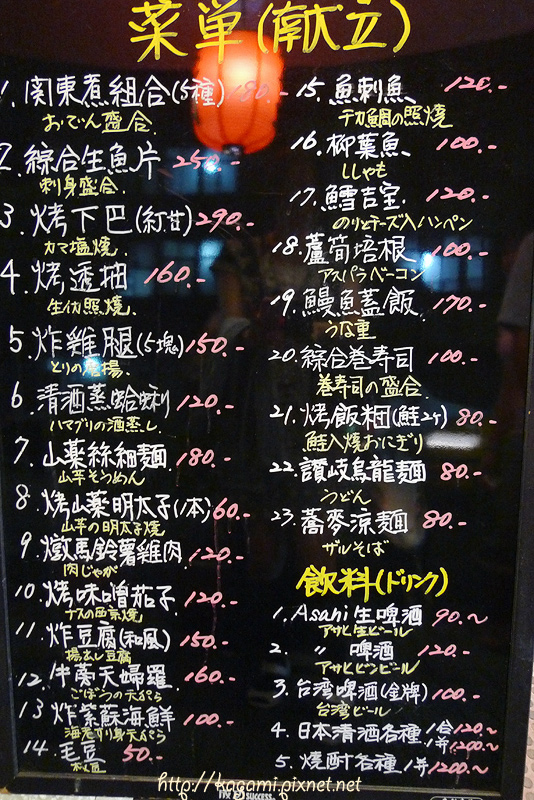 菜単(献立)
1. 関東煮組合(5種) 180.-
おでん盛合.
2. 綜合生魚片 250.-
刺身盛合.
3. 烤下巴(紅甘) 290.-
カマ塩焼.
4. 烤透抽 160.-
生イカ照焼.
5. 炸雞腿(5塊) 150.-
とりの唐揚.
6. 清酒蒸蛤蜊 120.-
ハマブリの酒蒸し.
7. 山薬絲細麵 180.-
山芋そうめん
8. 烤山薬明太子(1本) 60.-
山芋の明太子焼
9. 燉馬鈴薯雞肉 120.-
肉じゃが
10. 烤味噌茄子 120.-
ナスの西京焼
11. 炸豆腐(和風) 150.-
揚出し豆腐
12. 牛蒡天婦羅 160.-
ごぼうの天ぷら
13 炸紫蘇海鮮 100.-
海老すり身天ぷら
14. 毛豆 50.-
枝豆
15. 魚刺魚 120.-
の照焼
16. 柳葉魚 100.-
ししゃも
17. 鱈吉宝. 120.-
のりとチーズ入ハンペン
18. 蘆筍培根 100.-
アスパラベーコン
19. 鰻魚蓋飯 170.-
うな重
20. 綜合巻寿司 100.-
巻寿司の盛合.
21. 烤飯糰(鮭2ケ) 80.-
鮭入焼おにぎり
22. 讃岐烏龍麵 80.-
うどん
23. 蕎麥涼麵 80.-
ザルそば
飲料(ドリンク)
1. Asahi生啤酒 90.~
アサヒ生ビール
2. 〃 啤酒 120.-
アサヒビンビール
3. 台湾啤酒(金牌) 100.-
台湾ビール
4. 日本清酒各種 1合120~
1本1200~
5. 焼酎各種 1本1200~
http://kagami.pixnet.net
SUCCESS